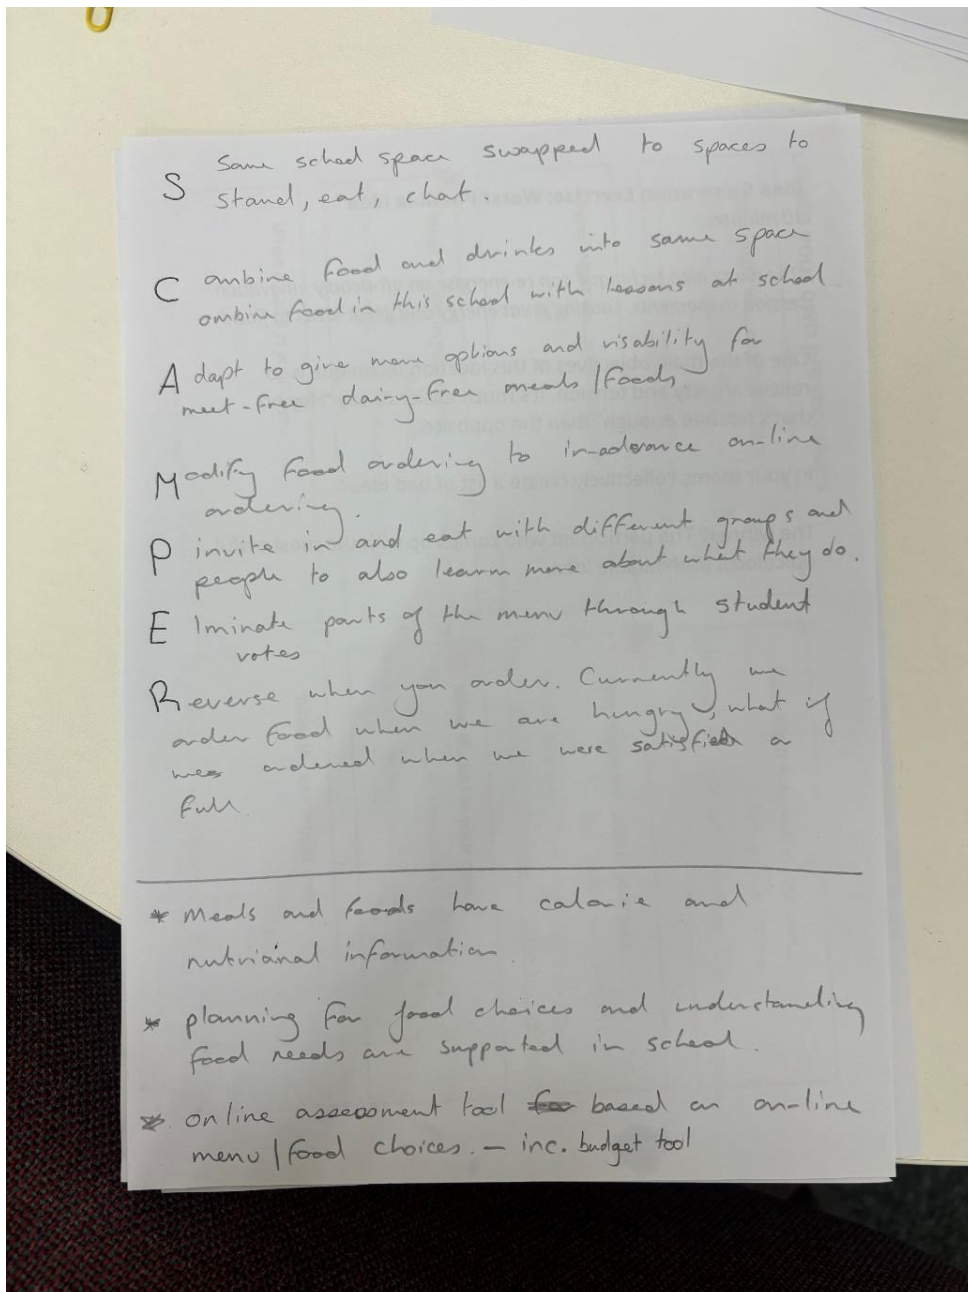 S Some school space swapped to spaces to
stand, eat, chat.
C ombine food and drinks into same space
ombine food in this school with lessons at school
A dapt to give more options and visability for
meet-free dairy-free meals/foods.
M odify food ordering to in-advance on-line
ordering.
P invite in and eat with different groups and
people to also learn more about what they do.
E lminate parts of the menu through student
votes
R everse when you order. Currently we
order food when we are hungry, what if
we ordered when we were satisfied or
full.
* Meals and foods have calorie and
nutrianal information.
* planning for food choices and understanding
food needs are supported in school.
* online assessment tool based on on-line
menu/food choices. – inc. budget tool